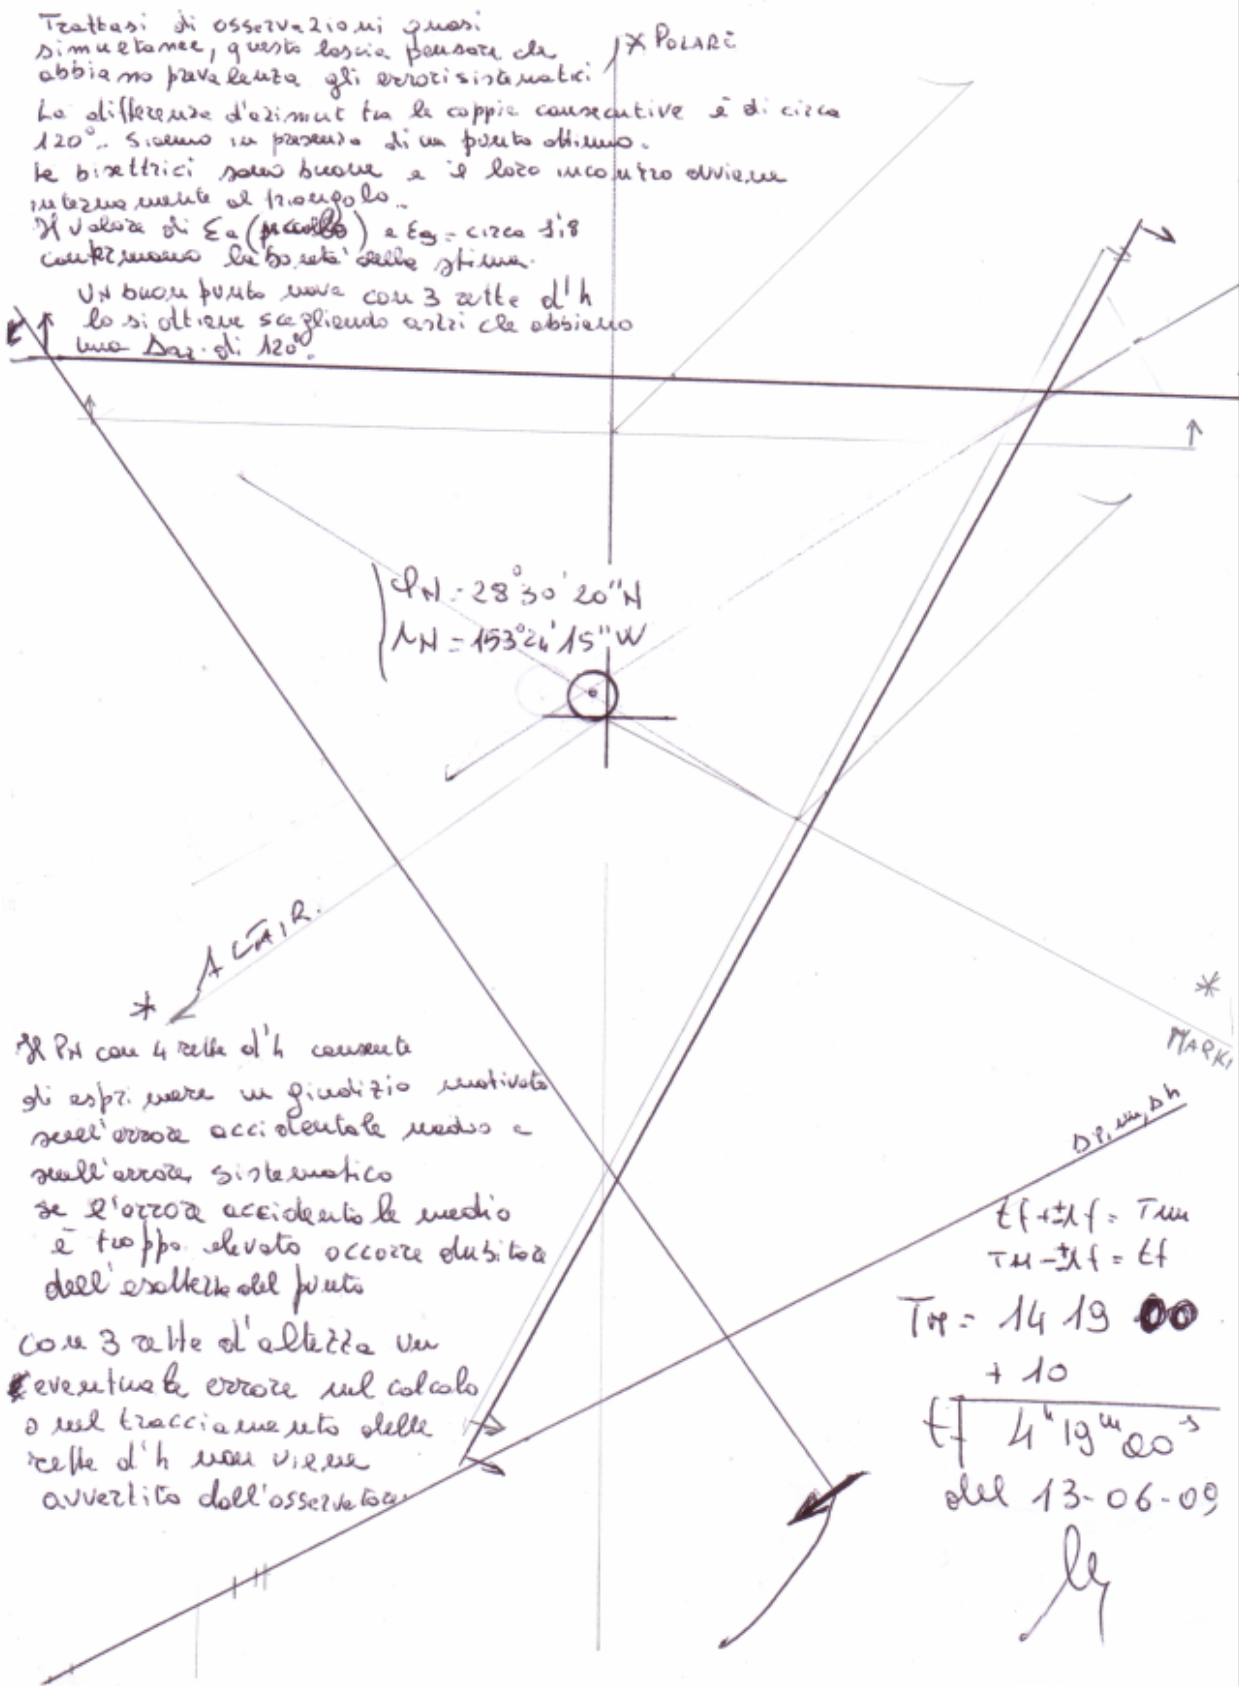 Trattasi di osservazioni quasi
simultanee, questo lascia pensare che
abbiano prevalenza gli errori sistematici
* POLARE
La differenza d'azimut tra le coppie consecutive è di circa
120°. Siamo in presenza di un punto ottimo.
Le bisettrici sono buone e il loro incontro avviene
internamente al triangolo.
Il valore di Ea (piccolo) e Eg = circa 1,8
confermano la bontà della stima.
UN buon punto nave con 3 rette d'h
lo si ottiene scegliendo astri che abbiano
una Δaz. di 120°.
φN = 28°30'20"N
λN = 153°24'15"W
ALTAIR.
*
*
MARK
Il PN con 4 rette d'h consente
di esprimere un giudizio motivato
sull'errore accidentale medio e
sull'errore sistematico
se l'errore accidentale medio
è troppo elevato occorre dubitare
dell'esattezza del punto
con 3 rette d'altezza un
eventuale errore nel calcolo
o nel tracciamento delle
rette d'h non viene
avvertito dall'osservatore
Δφ, m, Δh
tf+±λf = Tm
Tm-±λf = tf
Tm = 14 19 00
+ 10
tf 4h 19m 00s
del 13-06-09